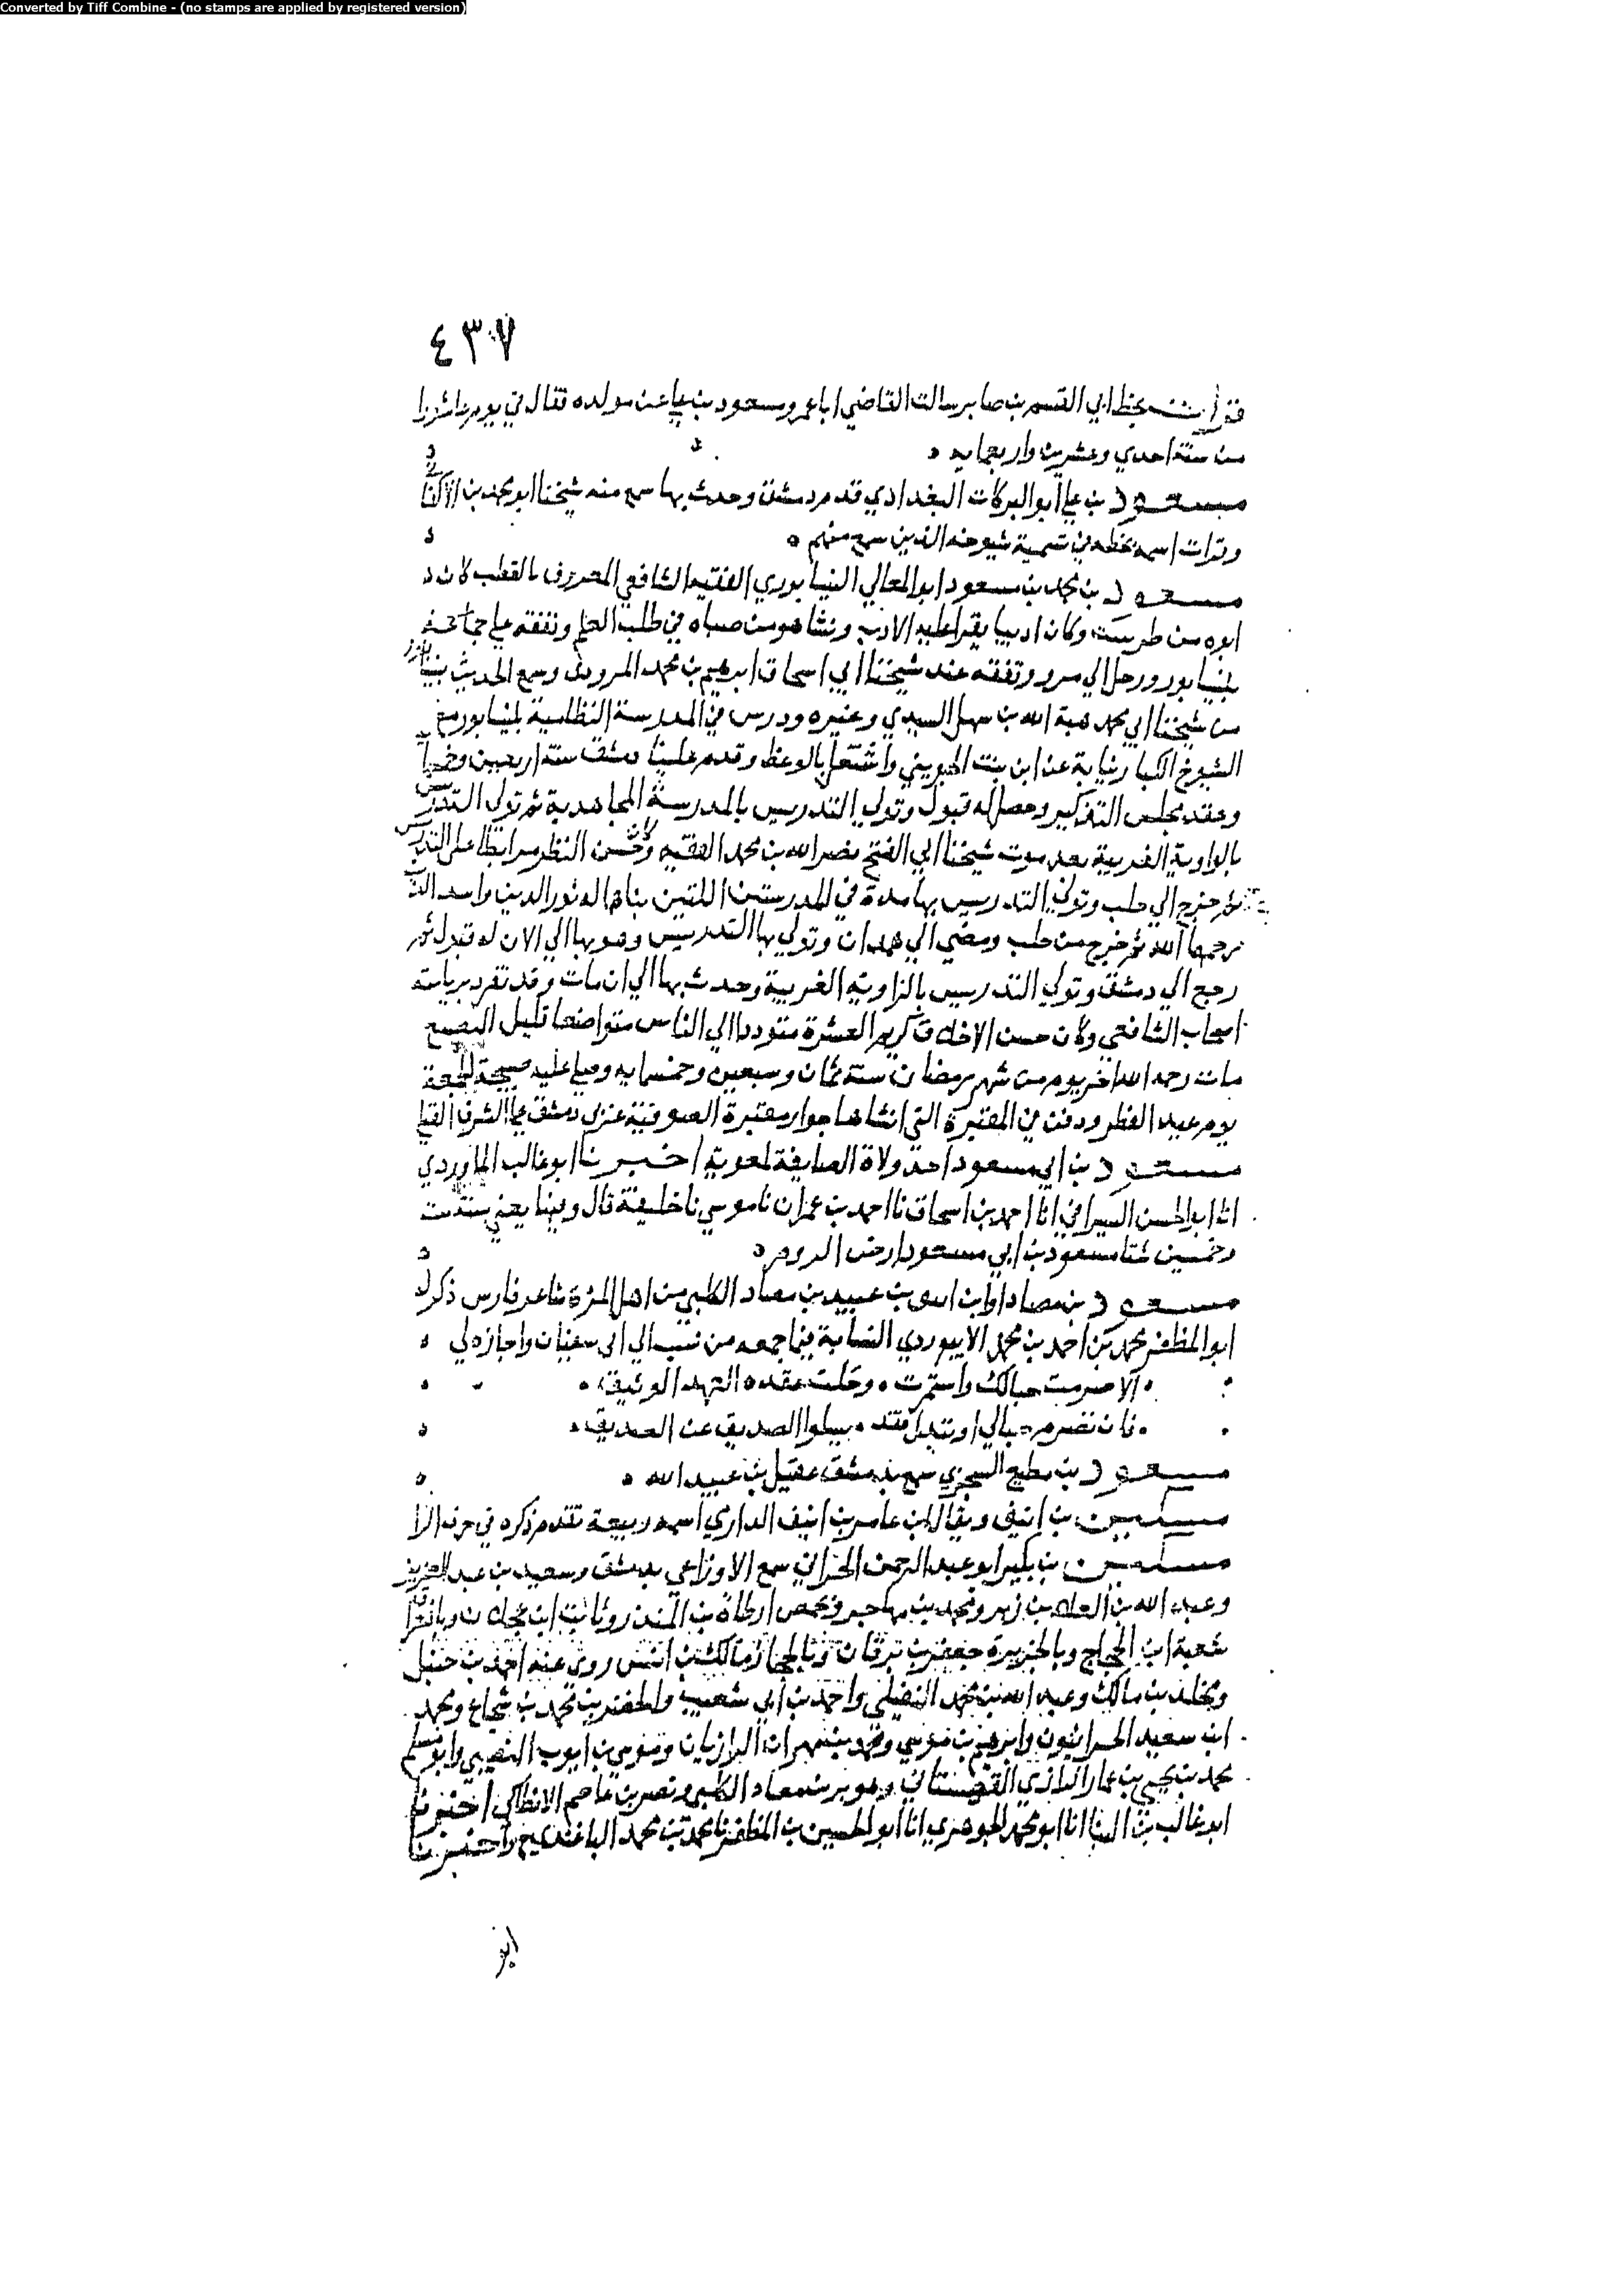 Converted by Tiff Combine - (no stamps are applied by registered version)
٤٣٧
قرأت بخط ابي القسم بن صابر سالت القاضي ابا عمرو مسعود بن علي عن مولده فقال في يوم عاشورا
من سنة احدي وعشرين واربعمايه
مسعود بن علي أبو البركات البغدادي قدم دمشق وحدث بها سمع منه شيخنا ابو محمد بن الاكفاني
وقرات اسمه بخطه في تسمية شيوخه الذين سمع منهم
مسعود بن محمد بن مسعود ابو المعالي النيسابوري الفقيه الشافعي المعروف بالقطب كان
ابوه من طريثيت وكان اديبا يقرا عليه الادب ونشا هو من صباه في طلب العلم وتفقه علي جماعة
بنيسابور ورحل الي مرو وتفقه عند شيخنا ابي اسحاق ابرهيم بن محمد المروذي وسمع الحديث بنيسابور
من شيخنا ابي محمد هبة الله بن سهل السيدي وغيره ودرس في المدرسة النظامية بنيسابور مع
الشيوخ الكبار نيابة عن ابن بنت الجويني واشتغل بالوعظ وقدم علينا دمشق سنة اربعين وخمسمائة
وعقد مجلس التذكير وحصل له قبول وتولي التدريس بالمدرسة المجاهدية ثم تولي التدريس
بالزاوية الغربية بعد موت شيخنا ابي الفتح نصر الله بن محمد الفقيه وكان حسن النظر مرابطا على التدريس
ثم خرج الي حلب وتولي التدريس بها مدة في المدرستين اللتين بناهما له نور الدين واسد الدين
رحمهما الله ثم خرج من حلب ومضي الي همدان وتولي بها التدريس وهو بها الي الان له قبول ثم
رجع الي دمشق وتولي التدريس بالزاوية الغربية وحدث بها الي ان مات وقد تفرد برياسة
اصحاب الشافعي وكان حسن الاخلاق كريم العشرة متوددا الي الناس متواضعا قليل التصنع
مات رحمه الله اخر يوم من شهر رمضان سنة ثمان وسبعين وخمسمايه وصلي عليه صبيحة الجمعة
يوم عيد الفطر ودفن في المقبرة التي انشاها جوار مقبرة الصوفية غربي دمشق علي الشرف القبلي
مسعود بن ابي مسعود احد ولاة الصايفة لمعوية اخبرنا ابو غالب الماوردي
انا ابو الحسن السيرافي انا احمد بن اسحاق نا احمد بن عمران نا موسي نا خليفة قال وفيها يعني سنة ست
وخمسين شتا مسعود بن ابي مسعود ارض الروم
مسعود بن مصاد اوابن اسوى بن عبيد بن مصاد الكلبي من اهل المزة شاعر فارس ذكره
ابو المظفر محمد بن احمد بن محمد الابيوردي النسابة فيما جمعه من نسب ال ابي سفيان واجازه لي
ألا صرمت حبالك واستمرت وحلت عقده العهد الوثيق
فان تصرم حبالي او تبدل فقد يسلوا الصديق عن الصديق
مسعود بن مطيع السجزي سمع بدمشق عقيل بن عبيد الله
مسكين بن انيف ويقال ابن عامر بن انيف الدارمي اسمه ربيعة تقدم ذكره في حرف الرا
مسكين بن بكير ابو عبد الرحمن الحراني سمع الاوزاعي بدمشق وسعيد بن عبد العزيز
وعبد الله بن العلاء بن زبر ومحمد بن مهاجر وبحمص ارطاة بن المنذر وثابت ابن عجلان وبالعراق
شعبة ابن الحجاج وبالجزيرة جعفر بن برقان وبالحجاز مالك بن انس روى عنه احمد بن حنبل
ومخلد بن مالك وعبد الله بن محمد النفيلي واحمد بن ابي شعيب والخضر بن محمد بن شجاع ومحمد
ابن سعيد الحرانيون وابرهيم بن موسي ومحمد بن مهران الرازيان وموسي بن ايوب النصيبي وابو مسلم
محمد بن يحيي بن عمار الرازي القهستاني وهوبر بن معاد الكلبي ونصر بن عاصم الانطاكي اخبرنا
ابو غالب بن البنا انا ابو محمد الجوهري انا ابو الحسين بن المظفر نا محمد بن محمد الباغندي ح واخبرنا
ابو